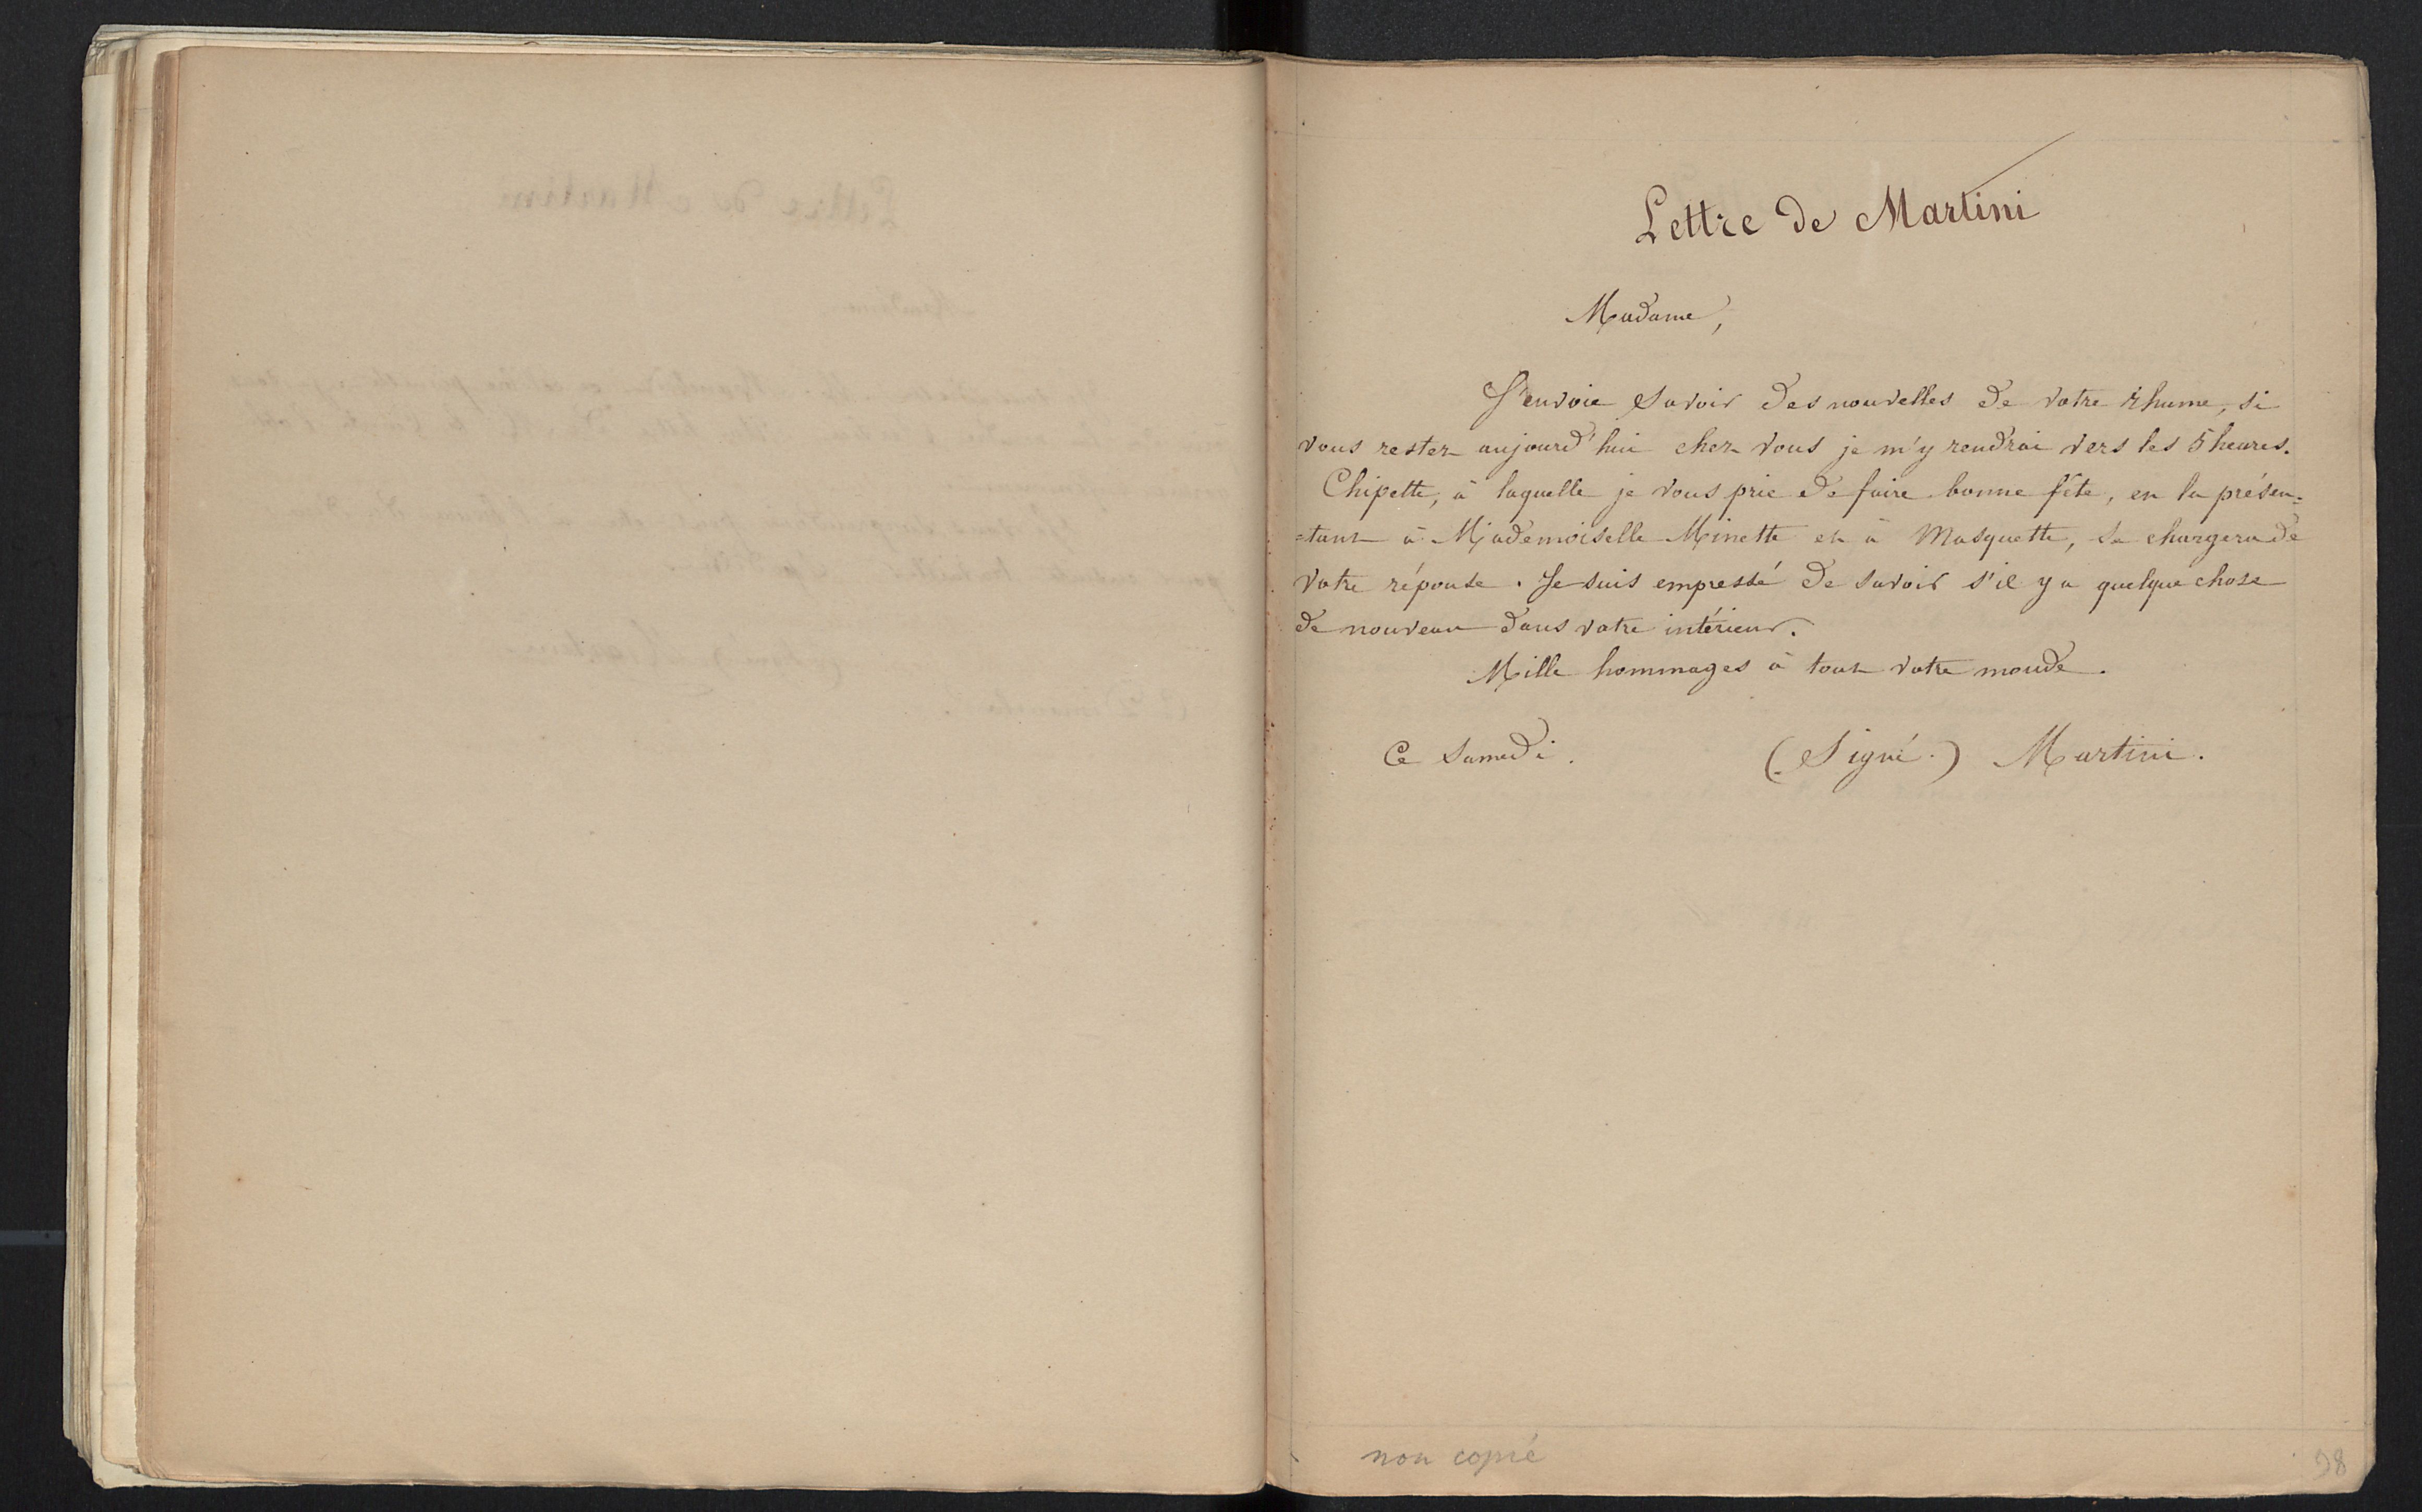 Lettre de Martini
Madame,
J'envoie savoir des nouvelles de votre rhume, si
vous restez aujourd'hui chez vous je m'y rendrai vers les 5 heures.
Chipette, à laquelle je vous prie de faire bonne fête, en la présen=
=tant à Mademoiselle Minette et à Masquette, se chargera de
votre réponse. Je suis empressé de savoir s'il y a quelque chose
de nouveau dans votre intérieur.
Mille hommages à tout votre monde.
Ce Samedi. (Signé.) Martini.
non copié
98